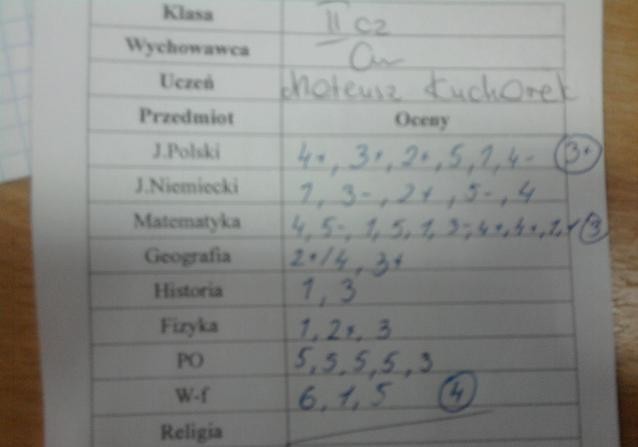 Klasa II cz
Wychowawca
Uczeń Mateusz Kuchorek
Przedmiot Oceny
J.Polski 4+, 3+, 2+, 5, 1, 4- 3+
J.Niemiecki 1, 3-, 2+, 5-, 4
Matematyka 4, 5-, 1, 5, 1, 3-, 4+, 4+, 1, 3
Geografia 2+/4, 3+
Historia 1, 3
Fizyka 1, 2+, 3
PO 5, 5, 5, 5, 3
W-f 6, 1, 5 4
Religia